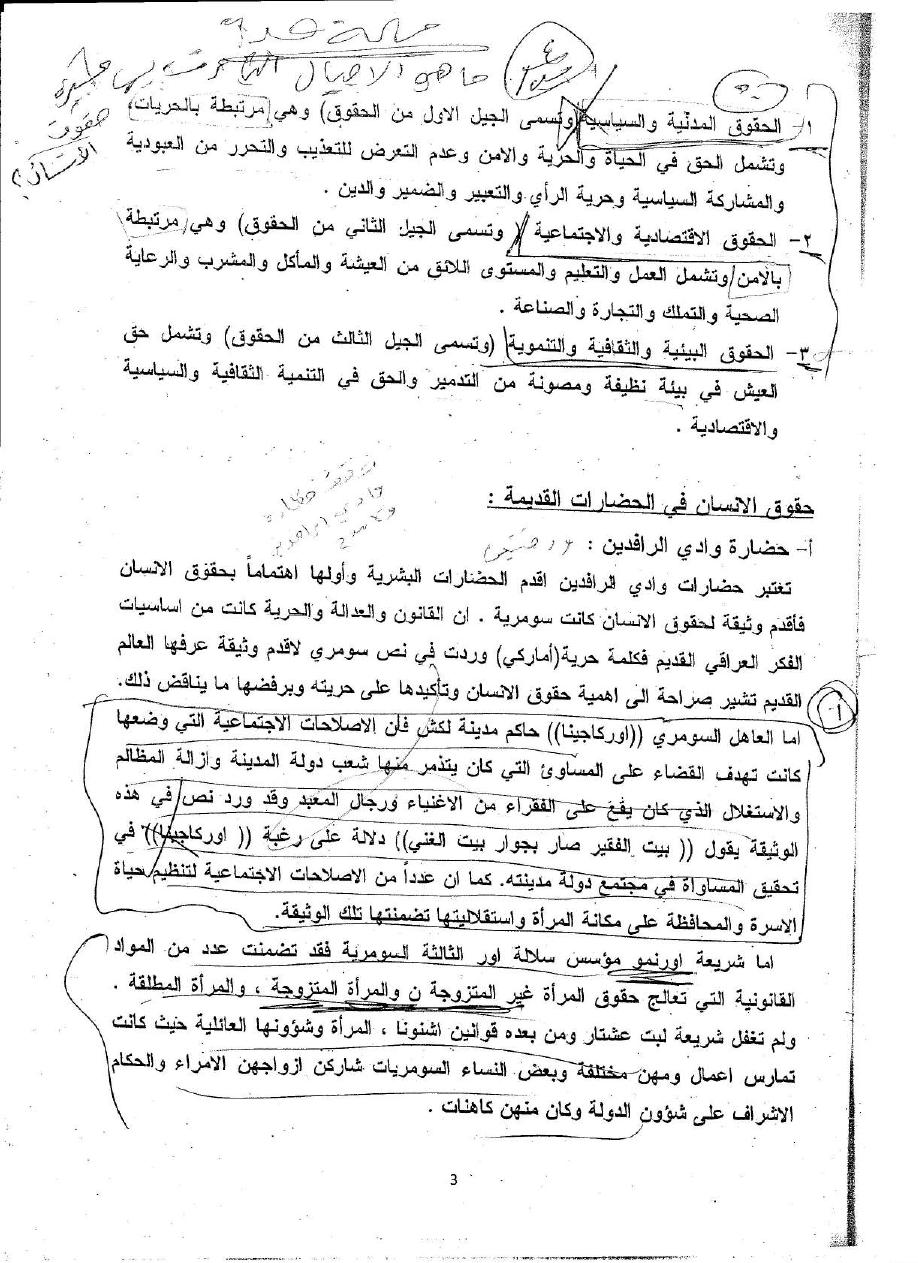 ما هي الاجيال التي مرت بها مسيرة
حقوق
الأنسان؟
١- الحقوق المدنية والسياسية (وتسمى الجيل الاول من الحقوق) وهي مرتبطة بالحريات،
وتشمل الحق في الحياة والحرية والامن وعدم التعرض للتعذيب والتحرر من العبودية
والمشاركة السياسية وحرية الرأي والتعبير والضمير والدين .
٢- الحقوق الاقتصادية والاجتماعية ( وتسمى الجيل الثاني من الحقوق) وهي مرتبطة
بالامن وتشمل العمل والتعليم والمستوى اللائق من العيشة والمأكل والمشرب والرعاية
الصحية والتملك والتجارة والصناعة .
٣- الحقوق البيئية والثقافية والتنموية (وتسمى الجيل الثالث من الحقوق) وتشمل حق
العيش في بيئة نظيفة ومصونة من التدمير والحق في التنمية الثقافية والسياسية
والاقتصادية .
حقوق الانسان في الحضارات القديمة :
أ- حضارة وادي الرافدين :
تعتبر حضارات وادي الرافدين اقدم الحضارات البشرية وأولها اهتماماً بحقوق الانسان
فأقدم وثيقة لحقوق الانسان كانت سومرية . ان القانون والعدالة والحرية كانت من اساسيات
الفكر العراقي القديم فكلمة حرية(أماركي) وردت في نص سومري لاقدم وثيقة عرفها العالم
القديم تشير صراحة الى اهمية حقوق الانسان وتأكيدها على حريته وبرفضها ما يناقض ذلك.
اما العاهل السومري ((اوركاجينا)) حاكم مدينة لكش فأن الاصلاحات الاجتماعية التي وضعها
كانت تهدف القضاء على المساوئ التي كان يتذمر منها شعب دولة المدينة وازالة المظالم
والاستغلال الذي كان يقع على الفقراء من الاغنياء ورجال المعبد وقد ورد نص في هذه
الوثيقة يقول (( بيت الفقير صار بجوار بيت الغني)) دلالة على رغبة (( اوركاجينا)) في
تحقيق المساواة في مجتمع دولة مدينته. كما ان عدداً من الاصلاحات الاجتماعية لتنظيم حياة
الاسرة والمحافظة على مكانة المرأة واستقلاليتها تضمنتها تلك الوثيقة.
اما شريعة اورنمو مؤسس سلالة اور الثالثة السومرية فقد تضمنت عدد من المواد
القانونية التي تعالج حقوق المرأة غير المتزوجة ن والمرأة المتزوجة ، والمرأة المطلقة .
ولم تغفل شريعة لبت عشتار ومن بعده قوانين اشنونا ، المرأة وشؤونها العائلية حيث كانت
تمارس اعمال ومهن مختلفة وبعض النساء السومريات شاركن ازواجهن الامراء والحكام
الاشراف على شؤون الدولة وكان منهن كاهنات .
3